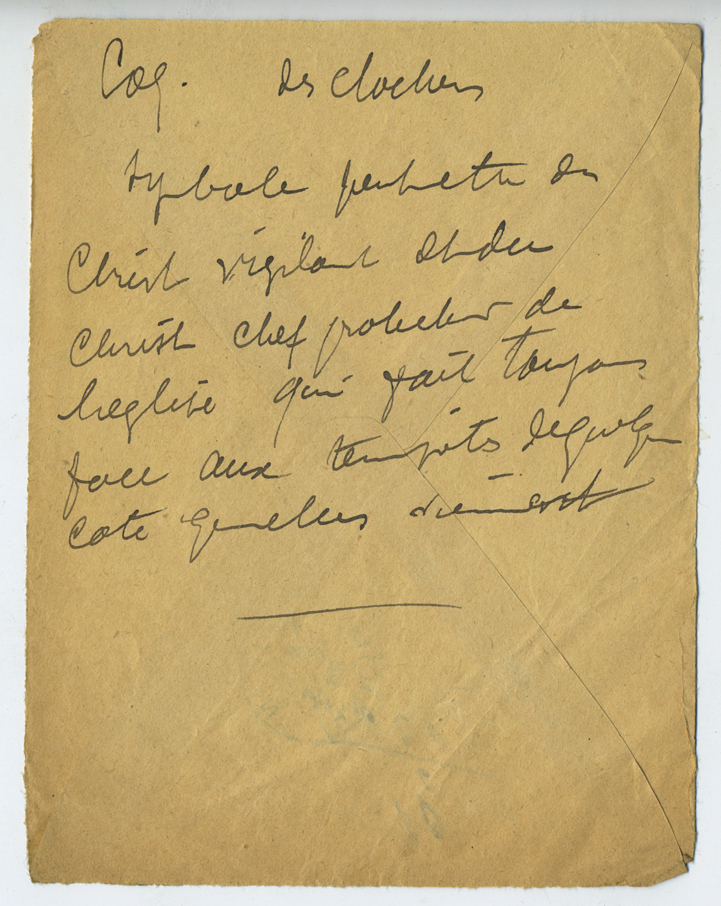 Coq. des clochers
symbole peut etre du
Christ vigilant et du
Christ chef protecteur de
l'eglise qui fait toujours
face aux tempêts de quelque
coté qu'elles viennent